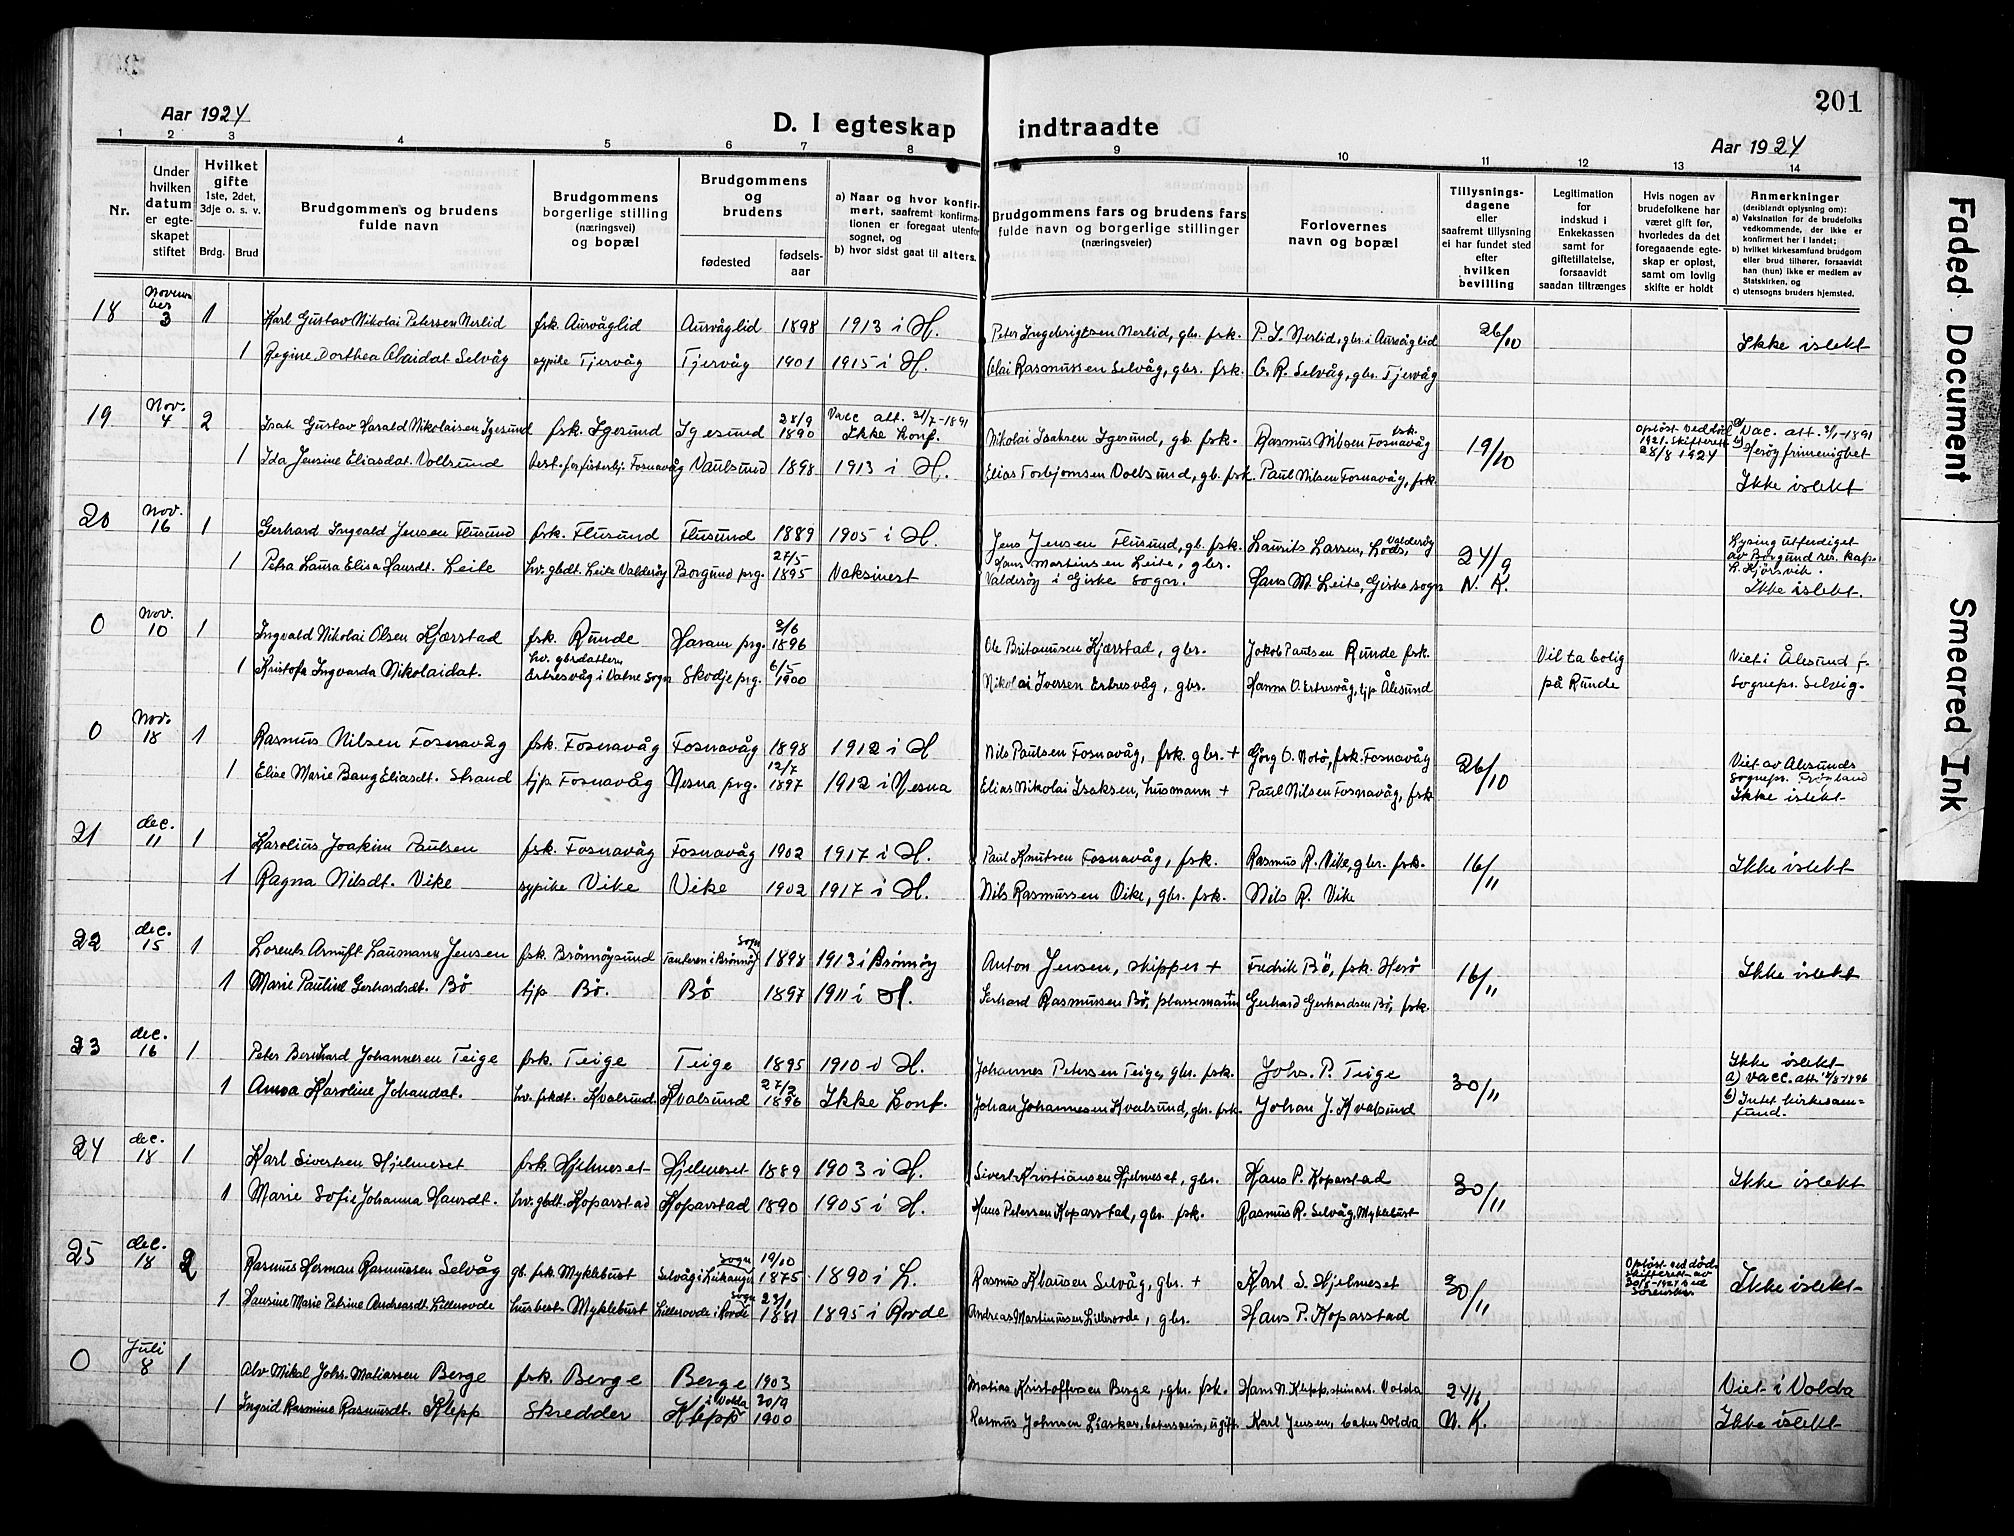 201
Aar 1924
D. I egteskap indtraadte
Aar 1924
1 2 3 4 5 6 7 8 9 10 11 12 13 14
Nr.
Under hvilken datum er egteskapet stiftet
Hvilket gifte
1ste, 2det, 3dje o. s. v.
Brdg. Brud
Brudgommens og brudens fulde navn
Brudgommens borgerlige stilling (næringsvei) og bopæl
Brudgommens og brudens
fødested
fødselsaar
a) Naar og hvor konfirmert, saafremt konfirmationen er foregaat utenfor sognet, og
b) hvor sidst gaat til alters.
Brudgommens fars og brudens fars fulde navn og borgerlige stillinger (næringsveier)
Forlovernes navn og bopæl
Tillysningsdagene eller saafremt tillysning ei har fundet sted efter hvilken bevilling
Legitimation for indskud i Enkekassen samt for giftetillatelse, forsaavidt saadan tiltrænges
Hvis nogen av brudefolkene har været gift før, hvorledes da det foregaaende egteskap er opløst, samt om lovlig skifte er holdt
Anmerkninger
(deriblandt oplysning om):
a) Vaksination for de brudefolks vedkommende, der ikke er konfirmert her i landet;
b) hvilket kirkesamfund brudgom eller brud tilhører, forsaavidt han (hun) ikke er medlem av Statskirken, og
c) utensogns bruders hjemsted.
18 November 3 1 Karl Gustav Nikolai Petersen Nerlid fsk. Aurvåglid Aurvåglid 1898 1913 i H. Peter Ingebrigtsen Nerlid, gbr. fsk. P. I. Nerlid, gbr. i Aurvåglid 26/10 Ikke i slekt
1 Regine Dorthea Olaidat Selvåg sypike Tjervåg Tjervåg 1901 1915 i H. Olai Rasmussen Selvåg, gbr. fsk. O. R. Selvåg, gbr. Tjervåg
19 Nov. 4 2 Isak Gustav Harald Nikolaisen Igesund fsk. Igesund Igesund 28/9 1890 Vacc. att. 31/7-1891 Ikke konf. Nikolai Isaksen Igesund, gb. fsk. Rasmus Nilsen Fosnavåg fsk. 19/10 Opløst ved død 1921. Skifterett 28/8 1924 a) Vac. att. 31/7-1891 b) Herøy frimenighet
1 Ida Jensine Eliasdat. Vollsund Fosnavåg Vaulsund 1898 1913 i H. Elias Torbjørnsen Vollsund, gb. fsk. Paul Nilsen Fosnavåg, fsk. Ikke i slekt
20 Nov. 16 1 Gerhard Ingvald Jensen Flusund fsk. Flusund Flusund 1889 1905 i H. Jens Jensen Flusund, gb. fsk. Laurits Larsen, Lods, Valderøy 24/9 Lysing utferdiget av Borgund res. kap. L. Hjörsvik.
1 Petra Laura Elisa Hansdt. Leite hv. gbdt. Leite Valderøy Borgund prg. 27/5 1895 Vaksinert Hans Martinsen Leite, gbr. Valderøy i Giske sogn. Hans M. Leite, Giske sogn N. K. Ikke i slekt.
0 Nov. 10 1 Ingvald Nikolai Olsen Kjærstad fsk. Runde Haram prg. 2/6 1896 Ole Britanusen Kjærstad, gbr. Jakob Paulsen Runde fsk. Vil ta bolig Viet i Ålesund f.
1 Kristofa Ingvarda Nikolaidat. hv. gbrdatter Ertresvåg i Vatne Sogn Skodje prg. 6/5 1900 Nikolai Iversen Ertresvåg, gbr. Hanna O. Ertresvåg, tjp Ålesund på Runde Sognepr. Selvig.
0 Nov. 18 1 Rasmus Nilsen Fosnavåg fsk. Fosnavåg Fosnavåg 1898 1912 i H Nils Paulsen Fosnavåg, fsk. gbr. + Gjörg O. Notö, fsk. Fosnavåg 26/10 Viet av Ålesunds sognepr. Frøiland
1 Elise Marie Bang Eliasdt. Strand tjp Fosnavåg Nesna prg. 12/7 1897 1912 i Nesna Elias Nikolai Isaksen, husmann + Paul Nilsen Fosnavåg, fsk Ikke i slekt
21 dec. 11 1 Karolius Joakim Paulsen fsk. Fosnavåg Fosnavåg 1902 1917 i H. Paul Knutsen Fosnavåg, fsk. Rasmus R. Vike, gbr. fsk. 16/11 Ikke i slekt
1 Ragna Nilsdt. Vike sypike Vike Vike 1902 1917 i H. Nils Rasmussen Vike, gbr. fsk. Nils R. Vike
22 dec. 15 1 Lorents Arnuft Laumann Jensen fsk. Brönnöysund Sogn i Brönnöy 1898 1913 i Brönnöy Anton Jensen, skipper + Fredrik Bö, fsk. Herö 16/11 Ikke i slekt
1 Marie Pauline Gerhardsdt. Bö tjp Bö. Bö 1897 1911 i H. Gerhard Rasmussen Bö, plassemann + Gerhard Gerhardsen Bö, fsk.
23 dec. 16 1 Peter Bernhard Johannesen Teige fsk. Teige Teige 1895 1910 i H. Johannes Petersen Teige, gbr. fsk. Johs. P. Teige 30/11 Ikke i slekt
1 Anna Karoline Johandat. hv. fskdt. Kvalsund Kvalsund 27/2 1896 Ikke konf. Johan Johannesen Kvalsund, gbr. fsk. Johan J. Kvalsund a) vacc. att. 1896 b) Intet kirkesamfund.
24 dec. 18 1 Karl Sivertsen Hjelmeset fsk Hjelmeset Hjelmeset 1889 1903 i H. Sivert Kristiansen Hjelmeset, gbr. Hans P. Koparstad 30/11 Ikke i slekt
1 Marie Sofie Johanna Hansdt. hv. gbdt. Koparstad Koparstad 1890 1905 i H. Hans Petersen Koparstad, gbr. fsk. Rasmus R. Selvåg, Myklebust
25 dec. 18 2 Rasmus Herman Rasmussen Selvåg gb. fsk. Myklebust Selvåg i Leikanger sogn 19/10 1875 1890 i L. Rasmus Klausen Selvåg, gbr. + Karl S. Hjelmeset 30/11 Opløst ved död. Skifterett av Ikke i slekt
1 Hansine Marie Petrine Andreasdt. Lillerovde husbest. Myklebust Lillerovde i Rovde sogn 23/1 1881 1895 i Rovde Andreas Martinussen Lillerovde, gbr. Hans P. Koparstad
0 Juli 8 1 Alv Mikal Johs. Matiassen Berge fsk. Berge Berge 1903 Matias Kristoffersen Berge, gbr. fsk. Hans N. Klepp, Volda 24/6 Viet i Volda
1 Ingrid Rasmine Rasmusdt. Klepp Skredder Klepp i Volda 30/9 1900 Rasmus Johnsen Liaskar, ugift Karl Jensen, baker Volda N. K. Ikke i slekt
Faded Document
Smeared Ink